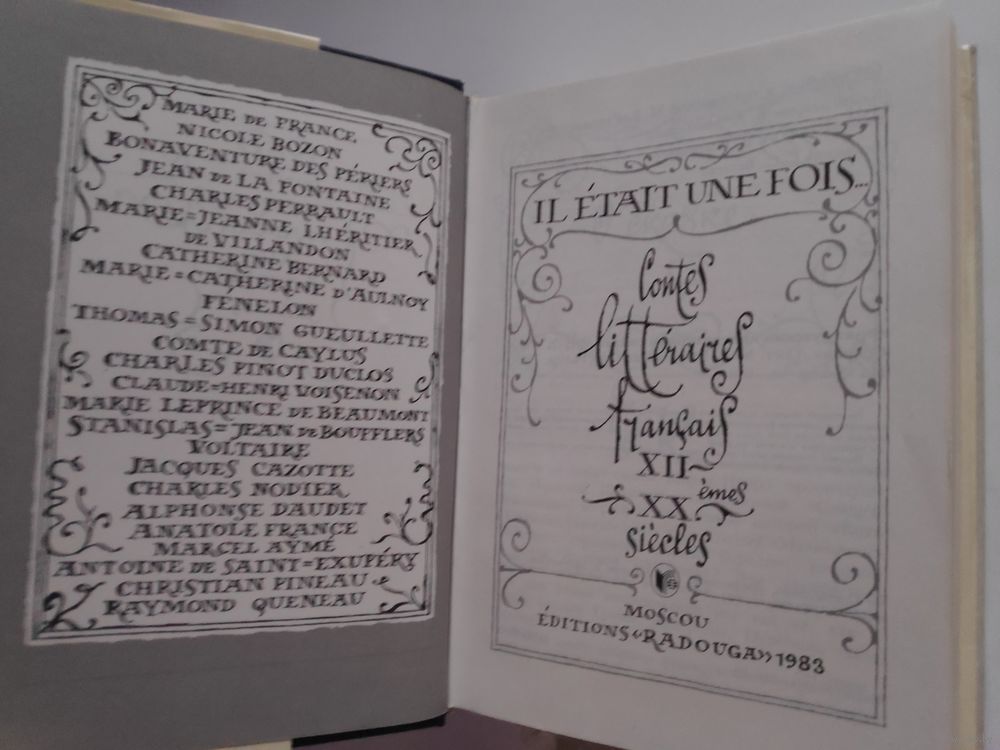 MARIE DE FRANCE
NICOLE BOZON
BONAVENTURE DES PÉRIERS
JEAN DE LA FONTAINE
CHARLES PERRAULT
MARIE=JEANNE LHÉRITIER
DE VILLANDON
CATHERINE BERNARD
MARIE=CATHERINE D'AULNOY
FÉNELON
THOMAS=SIMON GUEULLETTE
COMTE DE CAYLUS
CHARLES PINOT DUCLOS
CLAUDE=HENRI VOISENON
MARIE LEPRINCE DE BEAUMONT
STANISLAS=JEAN DE BOUFFLERS
VOLTAIRE
JACQUES CAZOTTE
CHARLES NODIER
ALPHONSE DAUDET
ANATOLE FRANCE
MARCEL AYMÉ
ANTOINE DE SAINT=EXUPÉRY
CHRISTIAN PINEAU
RAYMOND QUENEAU
IL ÉTAIT UNE FOIS...
Contes
littéraires
français
XII~
XXèmes
siècles
MOSCOU
ÉDITIONS «RADOUGA» 1983